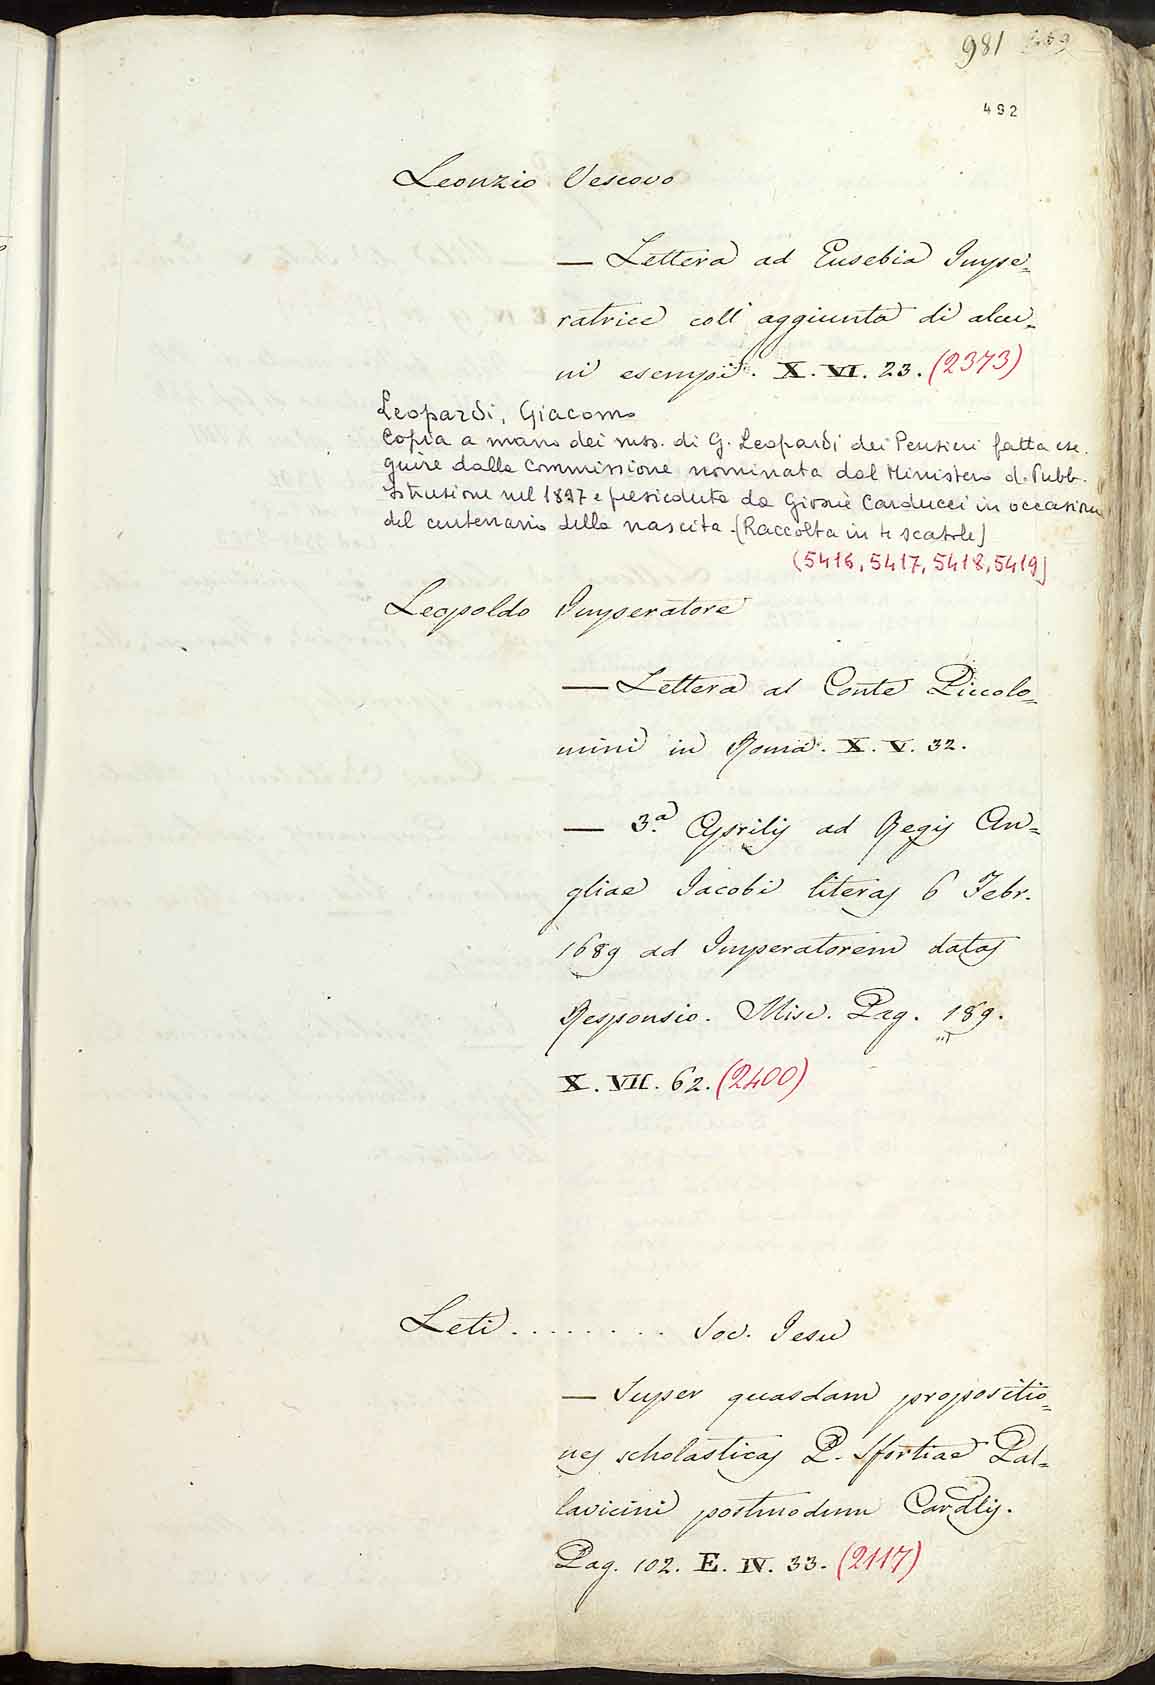 981
492
Leonzio Vescovo
— Lettera ad Eusebia Impe=
ratrice coll'aggiunta di alcu=
ni esempi. X. VI. 23. (2373)
Leopardi, Giacomo
Copia a mano dei mss. di G. Leopardi dei Pensieri fatta ese
guire dalla Commissione nominata dal Ministero d. Pubb.
Istruzione nel 1897 e presieduta da Giosuè Carducci in occasione
del centenario della nascita. [Raccolta in 4 scatole]
(5416, 5417, 5418, 5419]
Leopoldo Imperatore
— Lettera al Conte Piccolo=
mini in Roma. X. V. 32.
— 3.a Aprilis ad Regis An=
gliae Jacobi literas 6 Febr.
1689 ad Imperatorem datas
Responsio. Misc. Pag. 189.
X. VII. 62. (2400)
Leti . . . . . . . . Soc. Jesu
— Super quasdam propositio=
nes scholasticas P. Sfortiae Pal=
lavicini postmodum Cardlis.
Pag. 102. E. IV. 33. (2117)